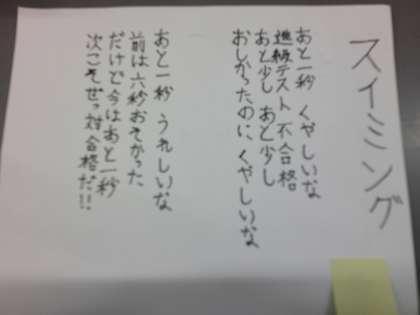 スイミング
あと一秒 くやしいな
進級テスト 不合格
あと少し あと少し
おしかったのに くやしいな
あと一秒 うれしいな
前は六秒おそかった
だけど今はあと一秒
次こそぜっ対合格だ!!